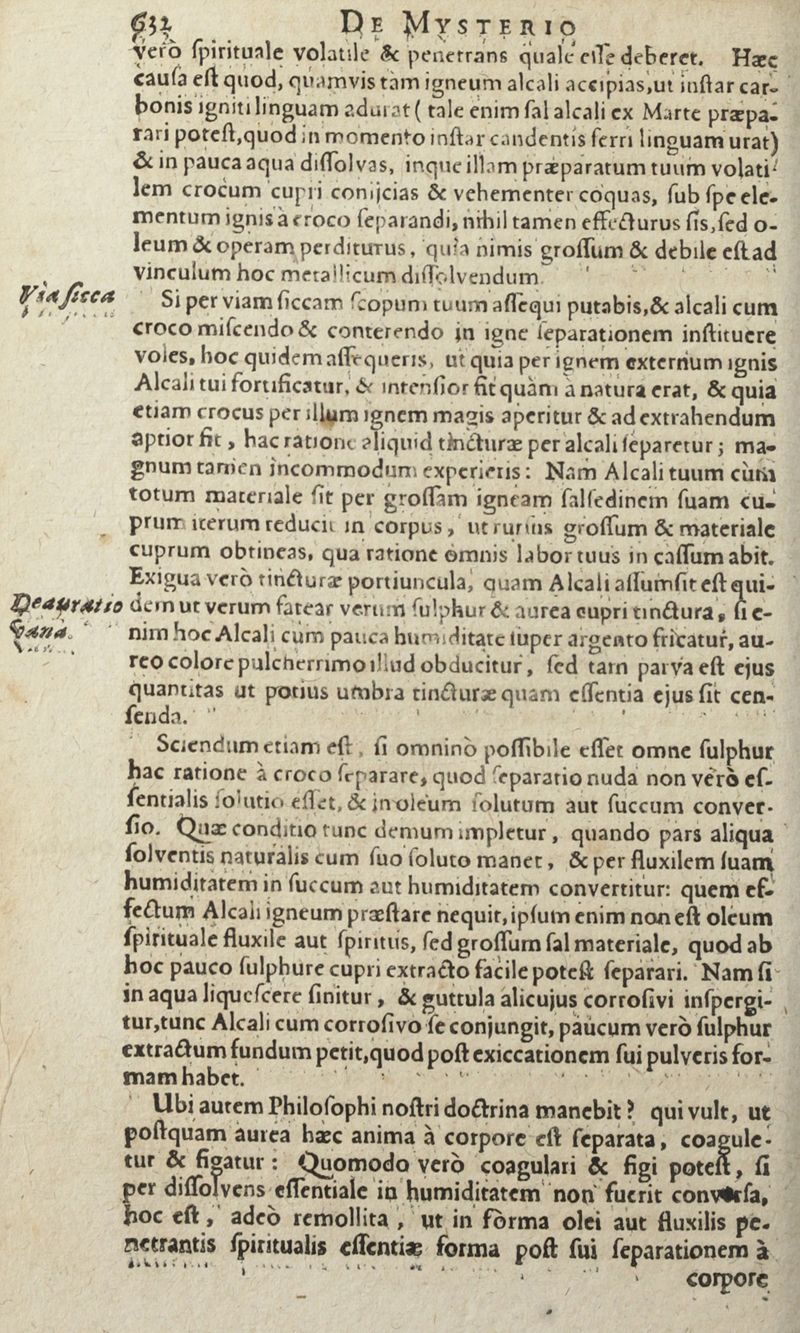 632 DE MYSTERIO
verò ſpirituale volatile & penetrans quale eſſe deberet. Hæc
cauſa eſt quod, quamvis tam igneum alcali accipias, ut inſtar car-
bonis igniti linguam adurat ( tale enim ſal alcali ex Marte præpa-
rari poteſt, quod in momento inſtar candentis ferri linguam urat)
& in pauca aqua diſſolvas, inque illam præparatum tuum volati-
lem crocum cupri conijcias & vehementer coquas, ſub ſpe ele-
mentum ignis à croco ſeparandi, nihil tamen effecturus ſis, ſed o-
leum & operam perditurus, quia nimis groſſum & debile eſt ad
vinculum hoc metallicum diſſolvendum.
Via ſicca
Si per viam ſiccam ſcopum tuum aſſequi putabis, & alcali cum
croco miſcendo & conterendo in igne ſeparationem inſtituere
voles, hoc quidem aſſequeris, ut quia per ignem externum ignis
Alcali tui fortificatur, & intenſior fit quàm à natura erat, & quia
etiam crocus per illum ignem magis aperitur & ad extrahendum
aptior fit, hac ratione aliquid tincturæ per alcali ſeparetur; ma-
gnum tamen incommodum experieris: Nam Alcali tuum cùm
totum materiale ſit per groſſam igneam ſalſedinem ſuam cu-
prum iterum reducit in corpus, ut rursus groſſum & materiale
cuprum obtineas, qua ratione omnis labor tuus in caſſum abit.
Exigua verò tincturæ portiuncula, quam Alcali aſſumſit eſt equi-
Deauratio
vana.
dem ut verum fatear verum ſulphur & aurea cupri tinctura, ſi e-
nim hoc Alcali cum pauca humiditate ſuper argento fricatur, au-
reo colore pulcherrimo illud obducitur, ſed tam parva eſt ejus
quantitas ut potius umbra tincturæ quam eſſentia ejus ſit cen-
ſenda.
Sciendum etiam eſt, ſi omninò poſſibile eſſet omne ſulphur
hac ratione à croco ſeparare, quod ſeparatio nuda non verò eſ-
ſentialis ſolutio eſſet, & in oleum ſolutum aut ſuccum conver-
ſio. Quæ conditio tunc demum impletur, quando pars aliqua
ſolventis naturalis cum ſuo ſoluto manet, & per fluxilem ſuam
humiditatem in ſuccum aut humiditatem convertitur: quem ef-
fectum Alcali igneum præſtare nequit, ipſum enim non eſt oleum
ſpirituale fluxile aut ſpiritus, ſed groſſum ſal materiale, quod ab
hoc pauco ſulphure cupri extracto facile poteſt ſeparari. Nam ſi
in aqua liqueſcere ſinitur, & guttula alicujus corroſivi inſpergi-
tur, tunc Alcali cum corroſivo ſe conjungit, paucum verò ſulphur
extractum fundum petit, quod poſt exiccationem ſui pulveris for-
mam habet.
Ubi autem Philoſophi noſtri doctrina manebit? qui vult, ut
poſtquam aurea hæc anima à corpore eſt ſeparata, coagule-
tur & figatur: Quomodo verò coagulari & figi poteſt, ſi
per diſſolvens eſſentiale in humiditatem non fuerit converſa,
hoc eſt, adeò remollita, ut in forma olei aut fluxilis pe-
netrantis ſpiritualis eſſentiæ forma poſt ſui ſeparationem à
corpore